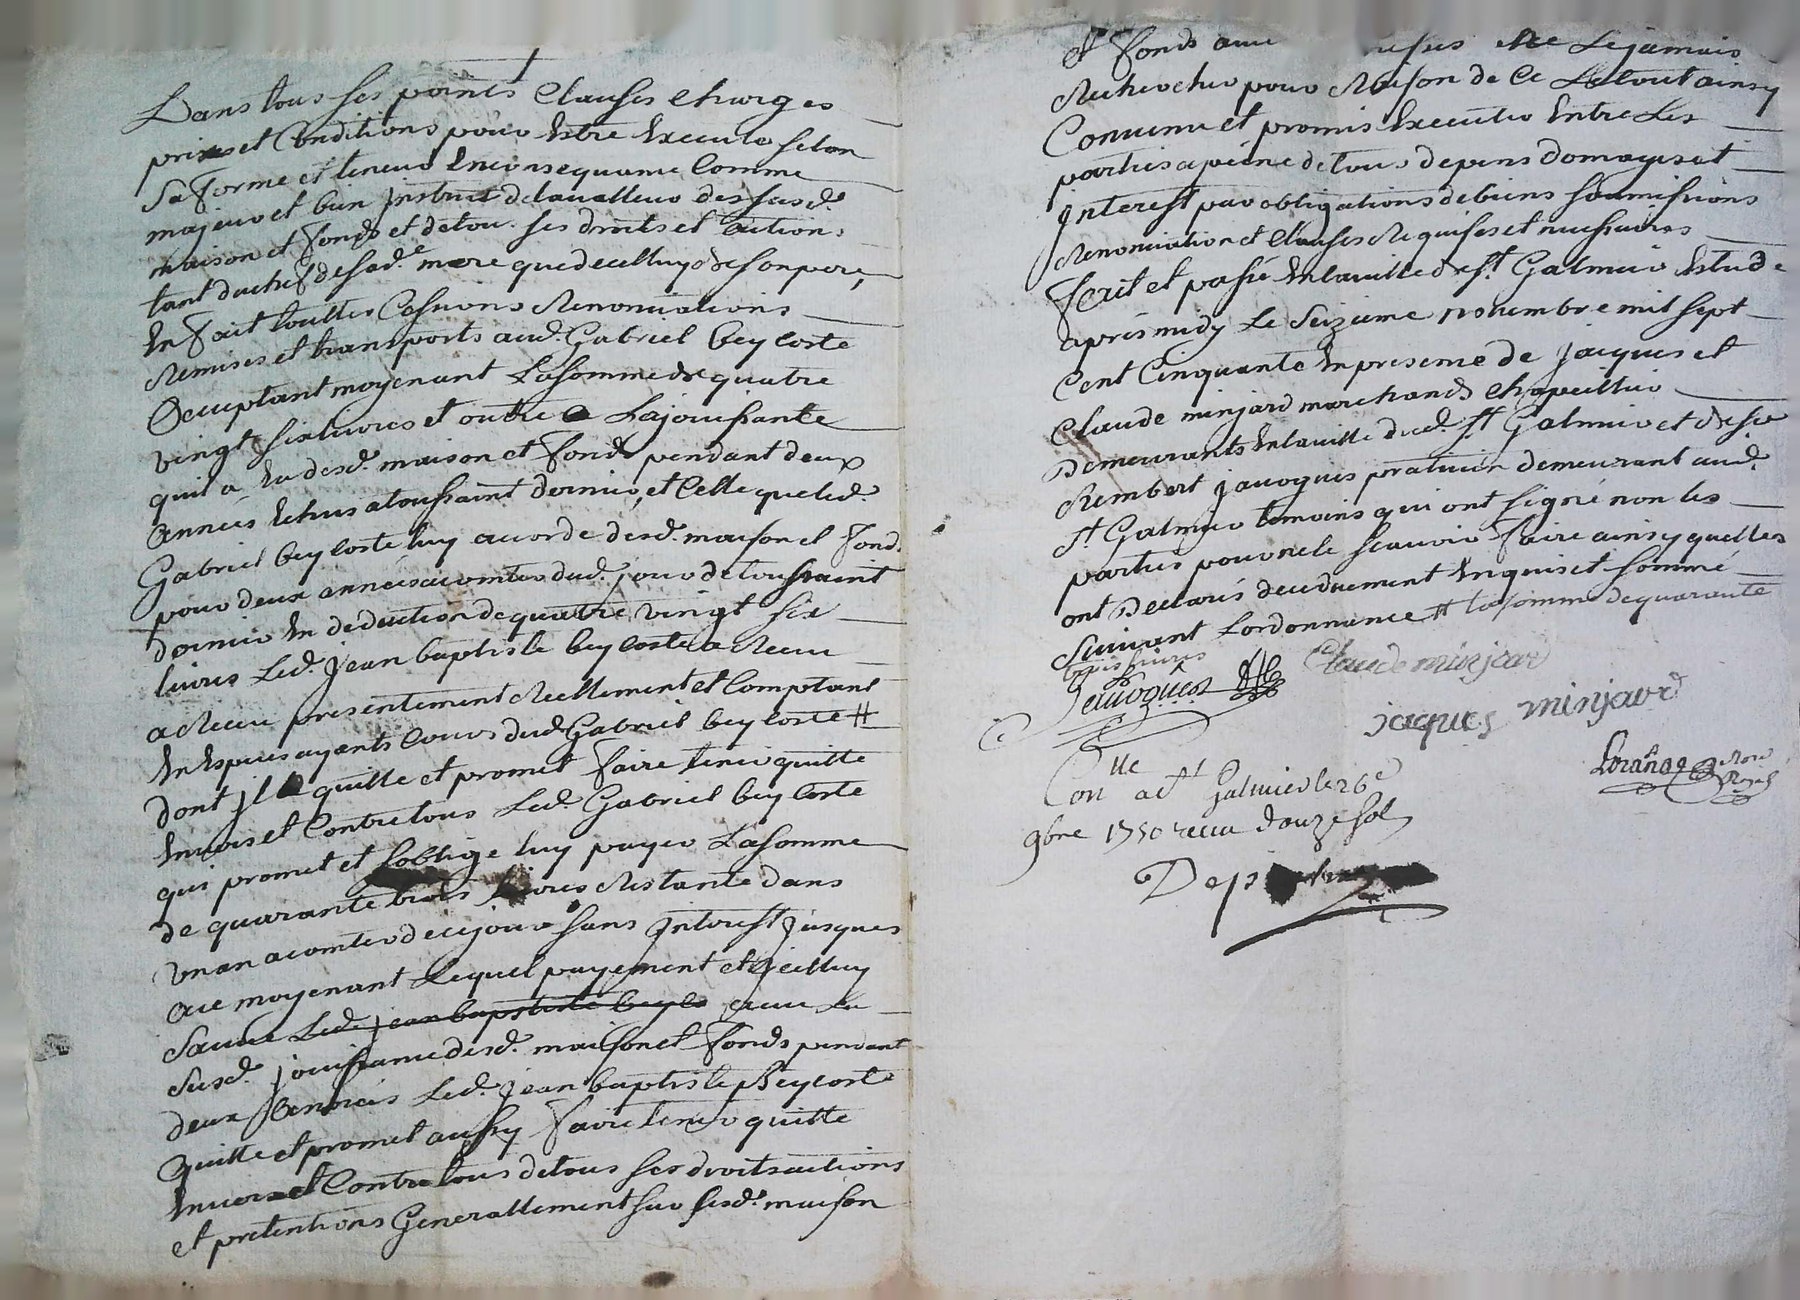 Dans tous ses points Clauses Charges
prix et Conditions pour Estre Executé selon
Sa Forme et teneur En consequance Comme
majeur et bien Instruit de la valleur des susd.
maison et fonds et de tou. ses droits et actions
tant du chef de sad. mere que de celluy de son pere,
En fait touttes Cessions Renonciations
Remises et transports aud. Gabriel Beycoste
acceptant moyenant La somme de quatre
vingt six livres et outre La jouissance
quil a Eu desd. maison et fonds pendant deux
années Echus a toussaint dernier, et Celle que led.
Gabriel beycoste luy accorde desd. maison et fonds
pour deux années acomter dud. jour de toussaint
dernier En deduction de quatre vingt six
livres Led. jean baptiste beycoste a Receu
a Receu presentement Reellement et Comptant
En Espèces ayants Cours dud. Gabriel beycoste #
dont jl quitte et promet faire tenir quitte
Envers et Contre tous Led. Gabriel beycoste
qui promet et soblige luy payer La somme
de quarante trois livres Restante dans
un an acomter de ce jour sans Interest jusques
ore moyenant Lequel payement et jcelluy
Led. jean baptiste beyco avec La
susd. jouissance desd. maison et fonds pendant
deux années Led. jean baptiste Beycoste
Quitte et promet aussy faire tenir quitte
Envers et Contre tous de tous ses droits actions
et pretentions Generallement sur lesd. maison
et fonds Le jamais
Rechercher pour Raison de Ce Le tout ainsy
Convenu et promis Executer Entre Les
parties a peine de tous depens domages et
Interest par obligations de biens soumissions
Renonciation et Clauses Requises et necessaires
Fait et passé En la ville de St. Galmier Etude
apres midy Le Seizieme novembre mil sept
Cent Cinquante En presence de jacques et
Claude minjard marchands Chapeillier
Demeurants En la ville dud. St Galmier et de sr
Rembert javogues praticien demeurant aud.
St. Galmier temoins qui ont signé non les
parties pour ne le scavoir faire ainsy quelles
ont Declarés de ce duement Enquis et sommé
Suivant Lordonnance # la somme de quarante
trois livres
Javogues Claude minjard
jaques minjard
Loranage Nore Royal
Conlle a St Galmier le 26e
9bre 1750 receu douze sols